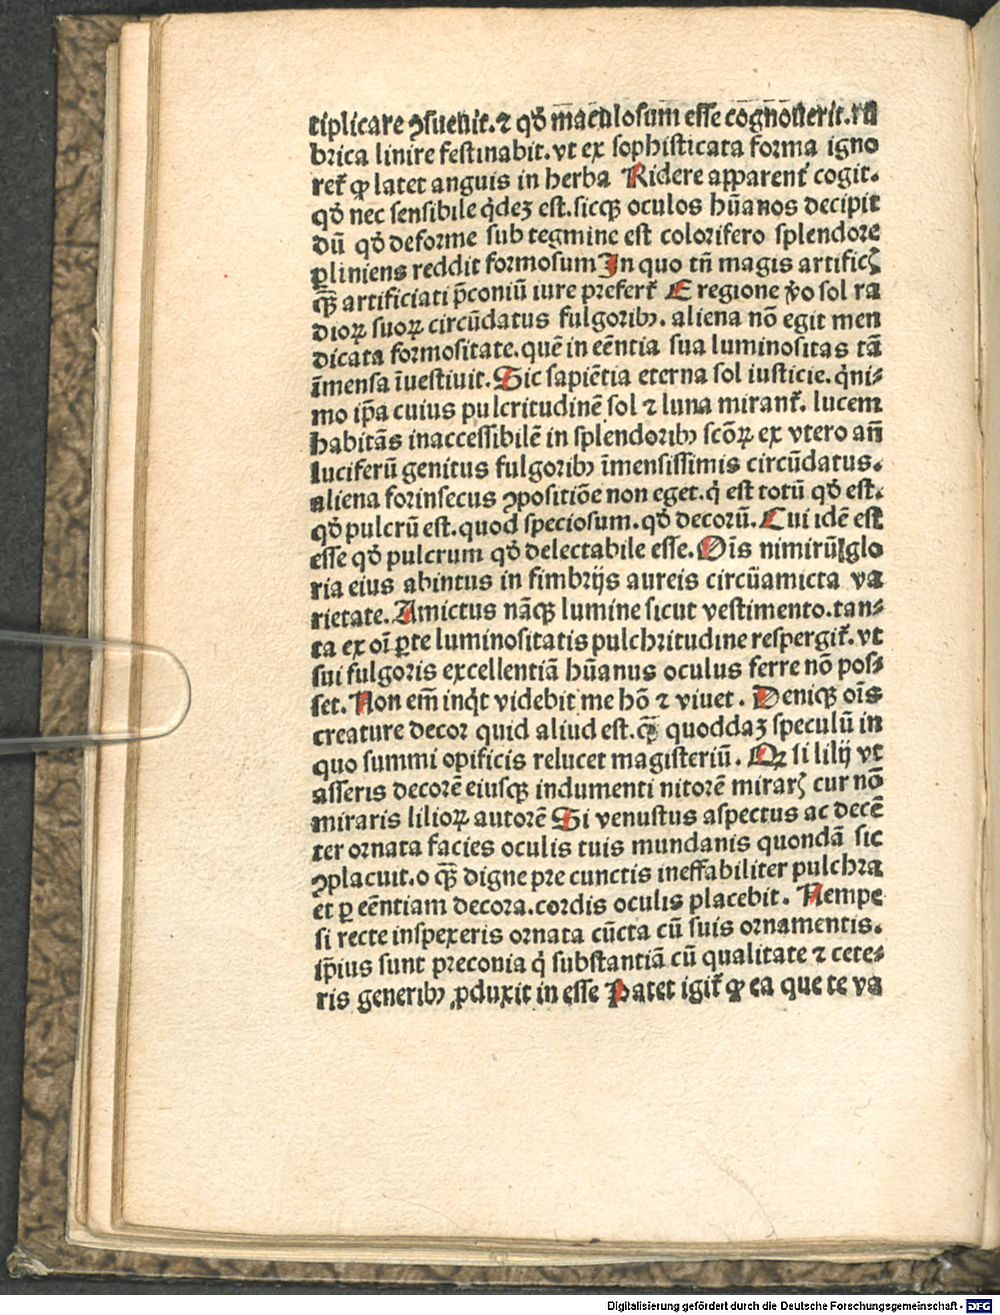 tiplicare ꝯsueuit. ⁊ qđ maculosum esse cognouerit. ru
brica linire festinabit. vt ex sophisticata forma igno
ret̃ ꝙ latet anguis in herba Ridere apparent̃ cogit.
qđ nec sensibile q̇dez est. sicqꝫ oculos hũanos decipit
dũ qđ deforme sub tegmine est colorifero splendore
ꝑliniens reddit formosum In quo tñ magis artificꝭ
qꝫ̃ artificiati p̃coniũ iure prefert̃ E regione ṽo sol ra
dioꝝ suoꝝ circũdatus fulgoribꝫ. aliena nõ egit men
dicata formositate. quẽ in eẽntia sua luminositas tã
ĩmensa ĩuestiuit. Sic sapiẽtia eterna sol iusticie. q̇ni⸗
mo ip̃a cuius pulcritudinẽ sol ⁊ luna mirant̃. lucem
habitãs inaccessibilẽ in splendoribꝫ scõꝝ ex vtero añ
luciferũ genitus fulgoribꝫ ĩmensissimis circũdatus.
aliena forinsecus ꝯpositiõe non eget. q̇ est totũ qđ est.
qđ pulcrũ est. quod speciosum. qđ decorũ. Cui idẽ est
esse qđ pulcrum qđ delectabile esse. Oĩs nimirũ glo
ria eius abintus in fimbrijs aureis circũamicta va
rietate. Amictus nãqꝫ lumine sicut vestimento. tan⸗
ta ex oĩ ꝑte luminositatis pulchritudine respergit̃. vt
sui fulgoris excellentiã hũanus oculus ferre nõ pos⸗
set. Non em̃ inq̇t videbit me hõ ⁊ viuet. Deniqꝫ oĩs
creature decor quid aliud est. qꝫ̃ quoddaʒ speculũ in
quo summi opificis relucet magisteriũ. Qꝛ si lilij vt
asseris decorẽ eiusqꝫ indumenti nitorẽ mirarꝭ cur nõ
miraris lilioꝝ autorẽ Si venustus aspectus ac decẽ
ter ornata facies oculis tuis mundanis quondã sic
ꝯplacuit. o qꝫ̃ digne pre cunctis ineffabiliter pulchra
et ꝑ eẽntiam decora. cordis oculis placebit. Nempe
si recte inspexeris ornata cũcta cũ suis ornamentis.
ip̃ius sunt preconia q̇ substantiã cũ qualitate ⁊ cete⸗
ris generibꝫ ꝓduxit in esse Patet igit̃ ꝙ ea que te va
Digitalisierung gefördert durch die Deutsche Forschungsgemeinschaft - DFG